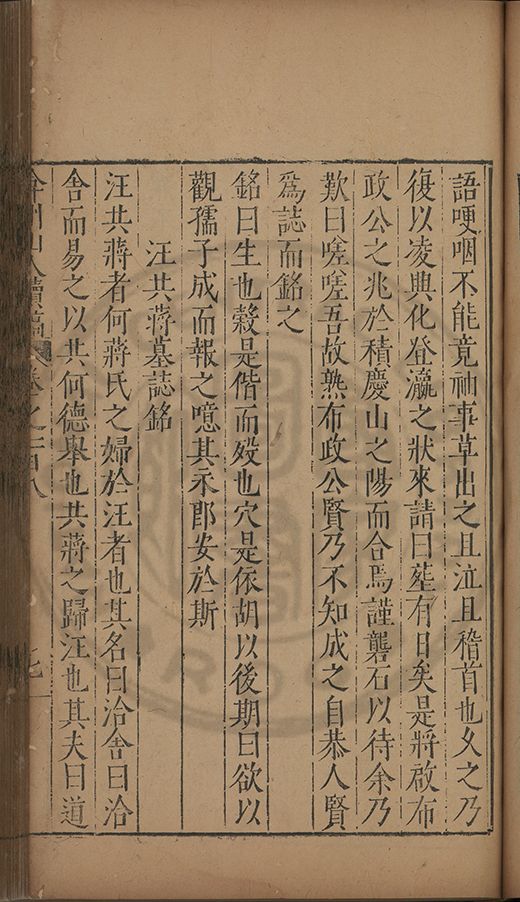 語哽咽不能竟袖事草出之且泣且稽首也久之乃
復以凌興化登瀛之狀來請曰塟有日矣是將啟布
政公之兆於積慶山之陽而合焉謹礱石以待余乃
歎曰嗟嗟吾故熟布政公賢乃不知成之自恭人賢
爲誌而銘之
銘曰生也榖是偕而歿也穴是依胡以後期曰欲以
觀孺子成而報之噫其永郎安於斯
汪共蔣墓誌銘
汪共蔣者何蔣氏之婦於汪者也其名曰洽舎曰洽
舎而易之以共何德舉也共蔣之歸汪也其夫曰道
人續稿 卷之一百八